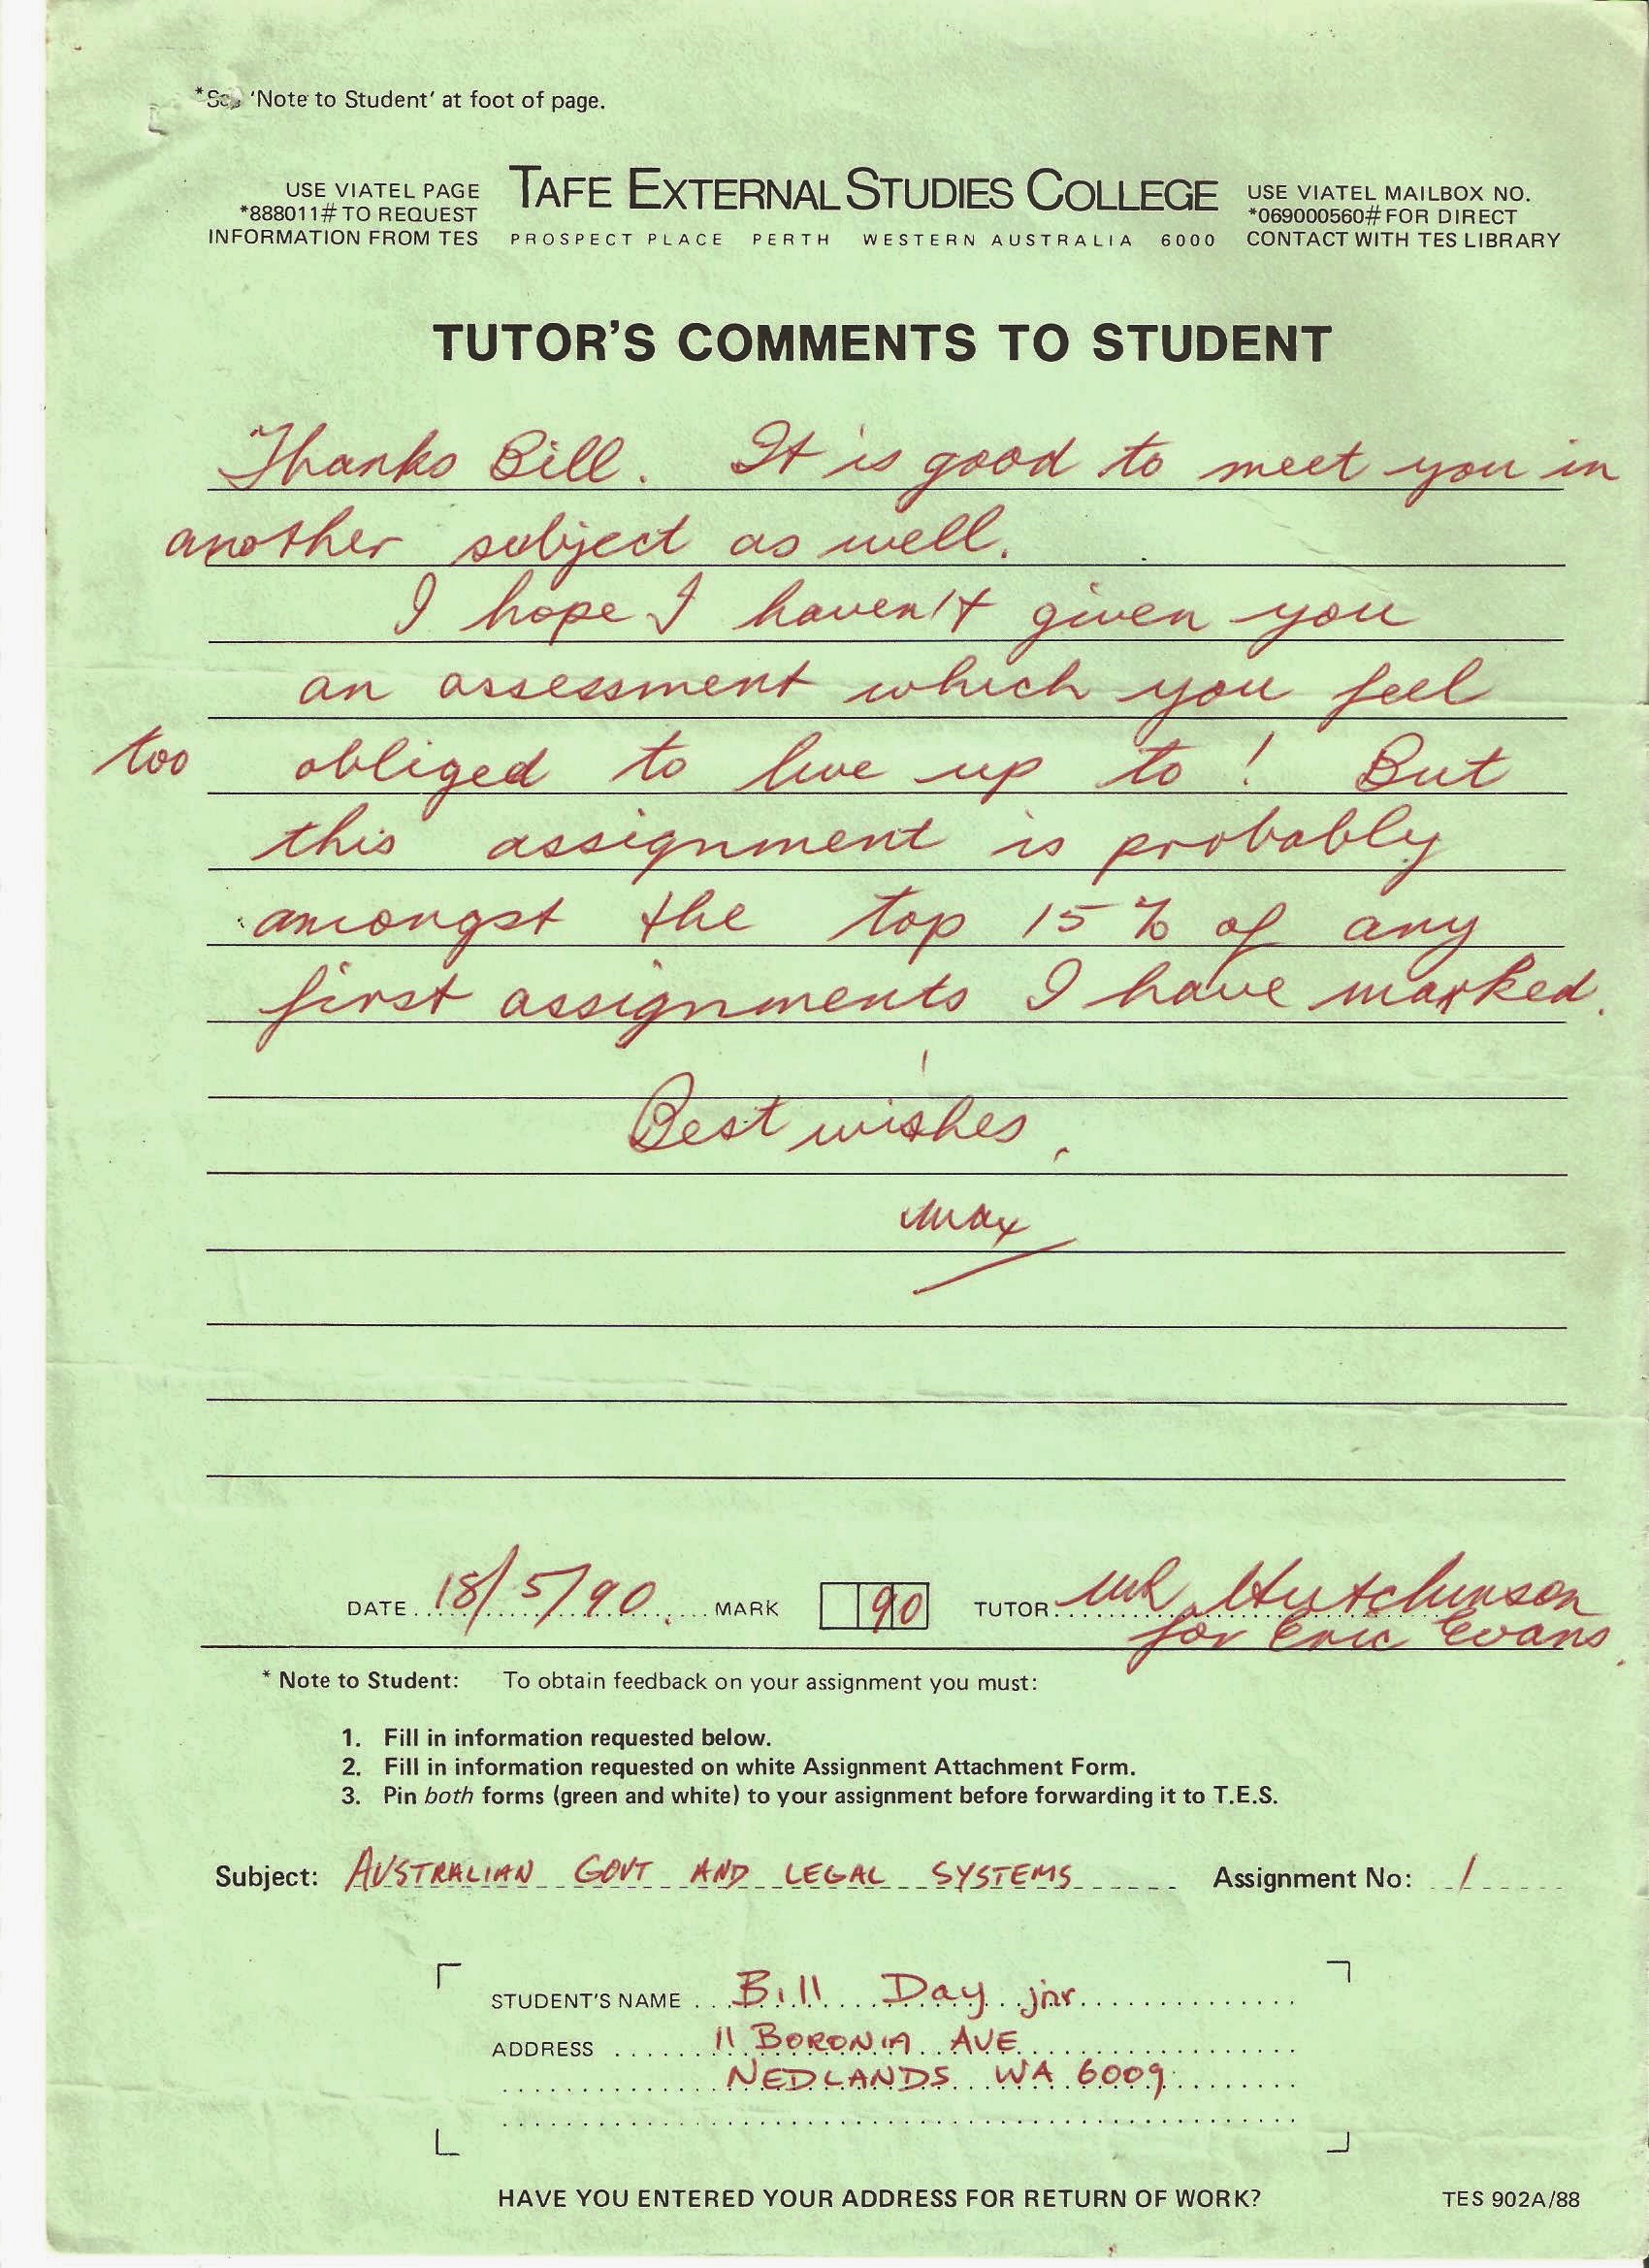 *See 'Note to Student' at foot of page.
USE VIATEL PAGE
*888011# TO REQUEST
INFORMATION FROM TES
TAFE EXTERNAL STUDIES COLLEGE
PROSPECT PLACE PERTH WESTERN AUSTRALIA 6000
USE VIATEL MAILBOX NO.
*069000560# FOR DIRECT
CONTACT WITH TES LIBRARY
TUTOR'S COMMENTS TO STUDENT
Thanks Bill. It is good to meet you in
another subject as well.
I hope I haven't given you
an assessment which you feel
too obliged to live up to! But
this assignment is probably
amongst the top 15% of any
first assignments I have marked.
Best wishes,
Max
DATE 18/5/90. MARK 90 TUTOR Hutchinson
for Eric Evans.
* Note to Student: To obtain feedback on your assignment you must:
1. Fill in information requested below.
2. Fill in information requested on white Assignment Attachment Form.
3. Pin both forms (green and white) to your assignment before forwarding it to T.E.S.
Subject: AUSTRALIAN GOVT AND LEGAL SYSTEMS Assignment No: 1
STUDENT'S NAME Bill Day jnr
ADDRESS 11 BORONIA AVE
NEDLANDS WA 6009
HAVE YOU ENTERED YOUR ADDRESS FOR RETURN OF WORK?
TES 902A/88